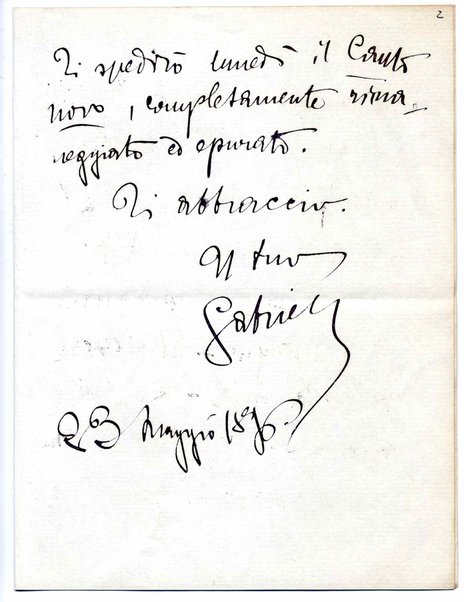 2
Ti spedirò lunedì il Canto
novo, completamente rima-
neggiato ed epurato.
Ti abbraccio.
Il tuo
Gabriele
23 Maggio 1896.